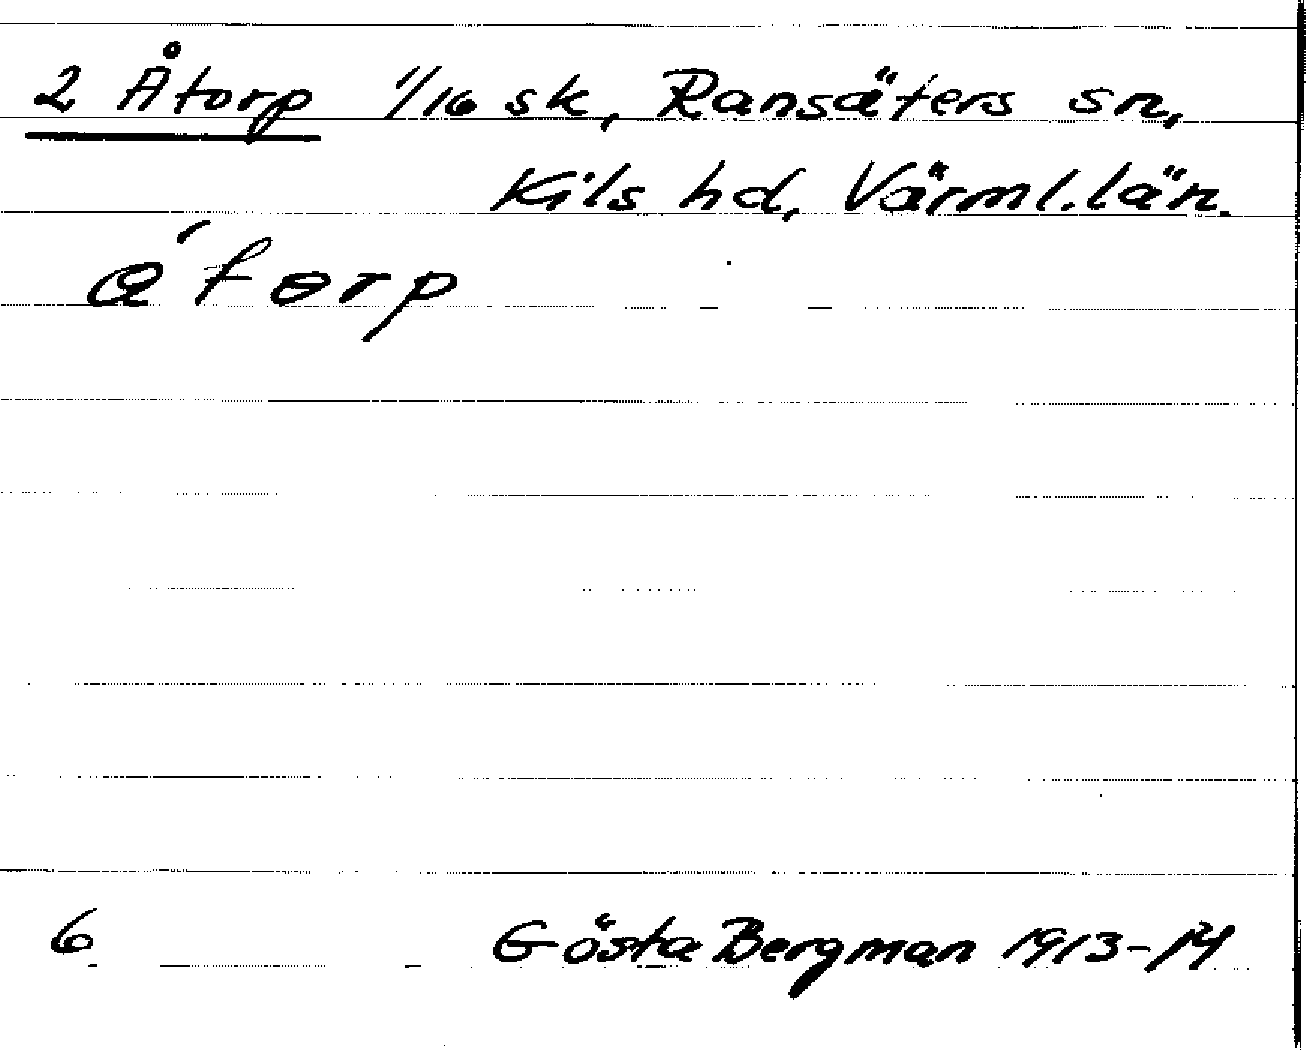 2 Åtorp 1/16 sk, Ransäters sn,
Kils hd, Värml. län.
6 Gösta Bergman 1913-14